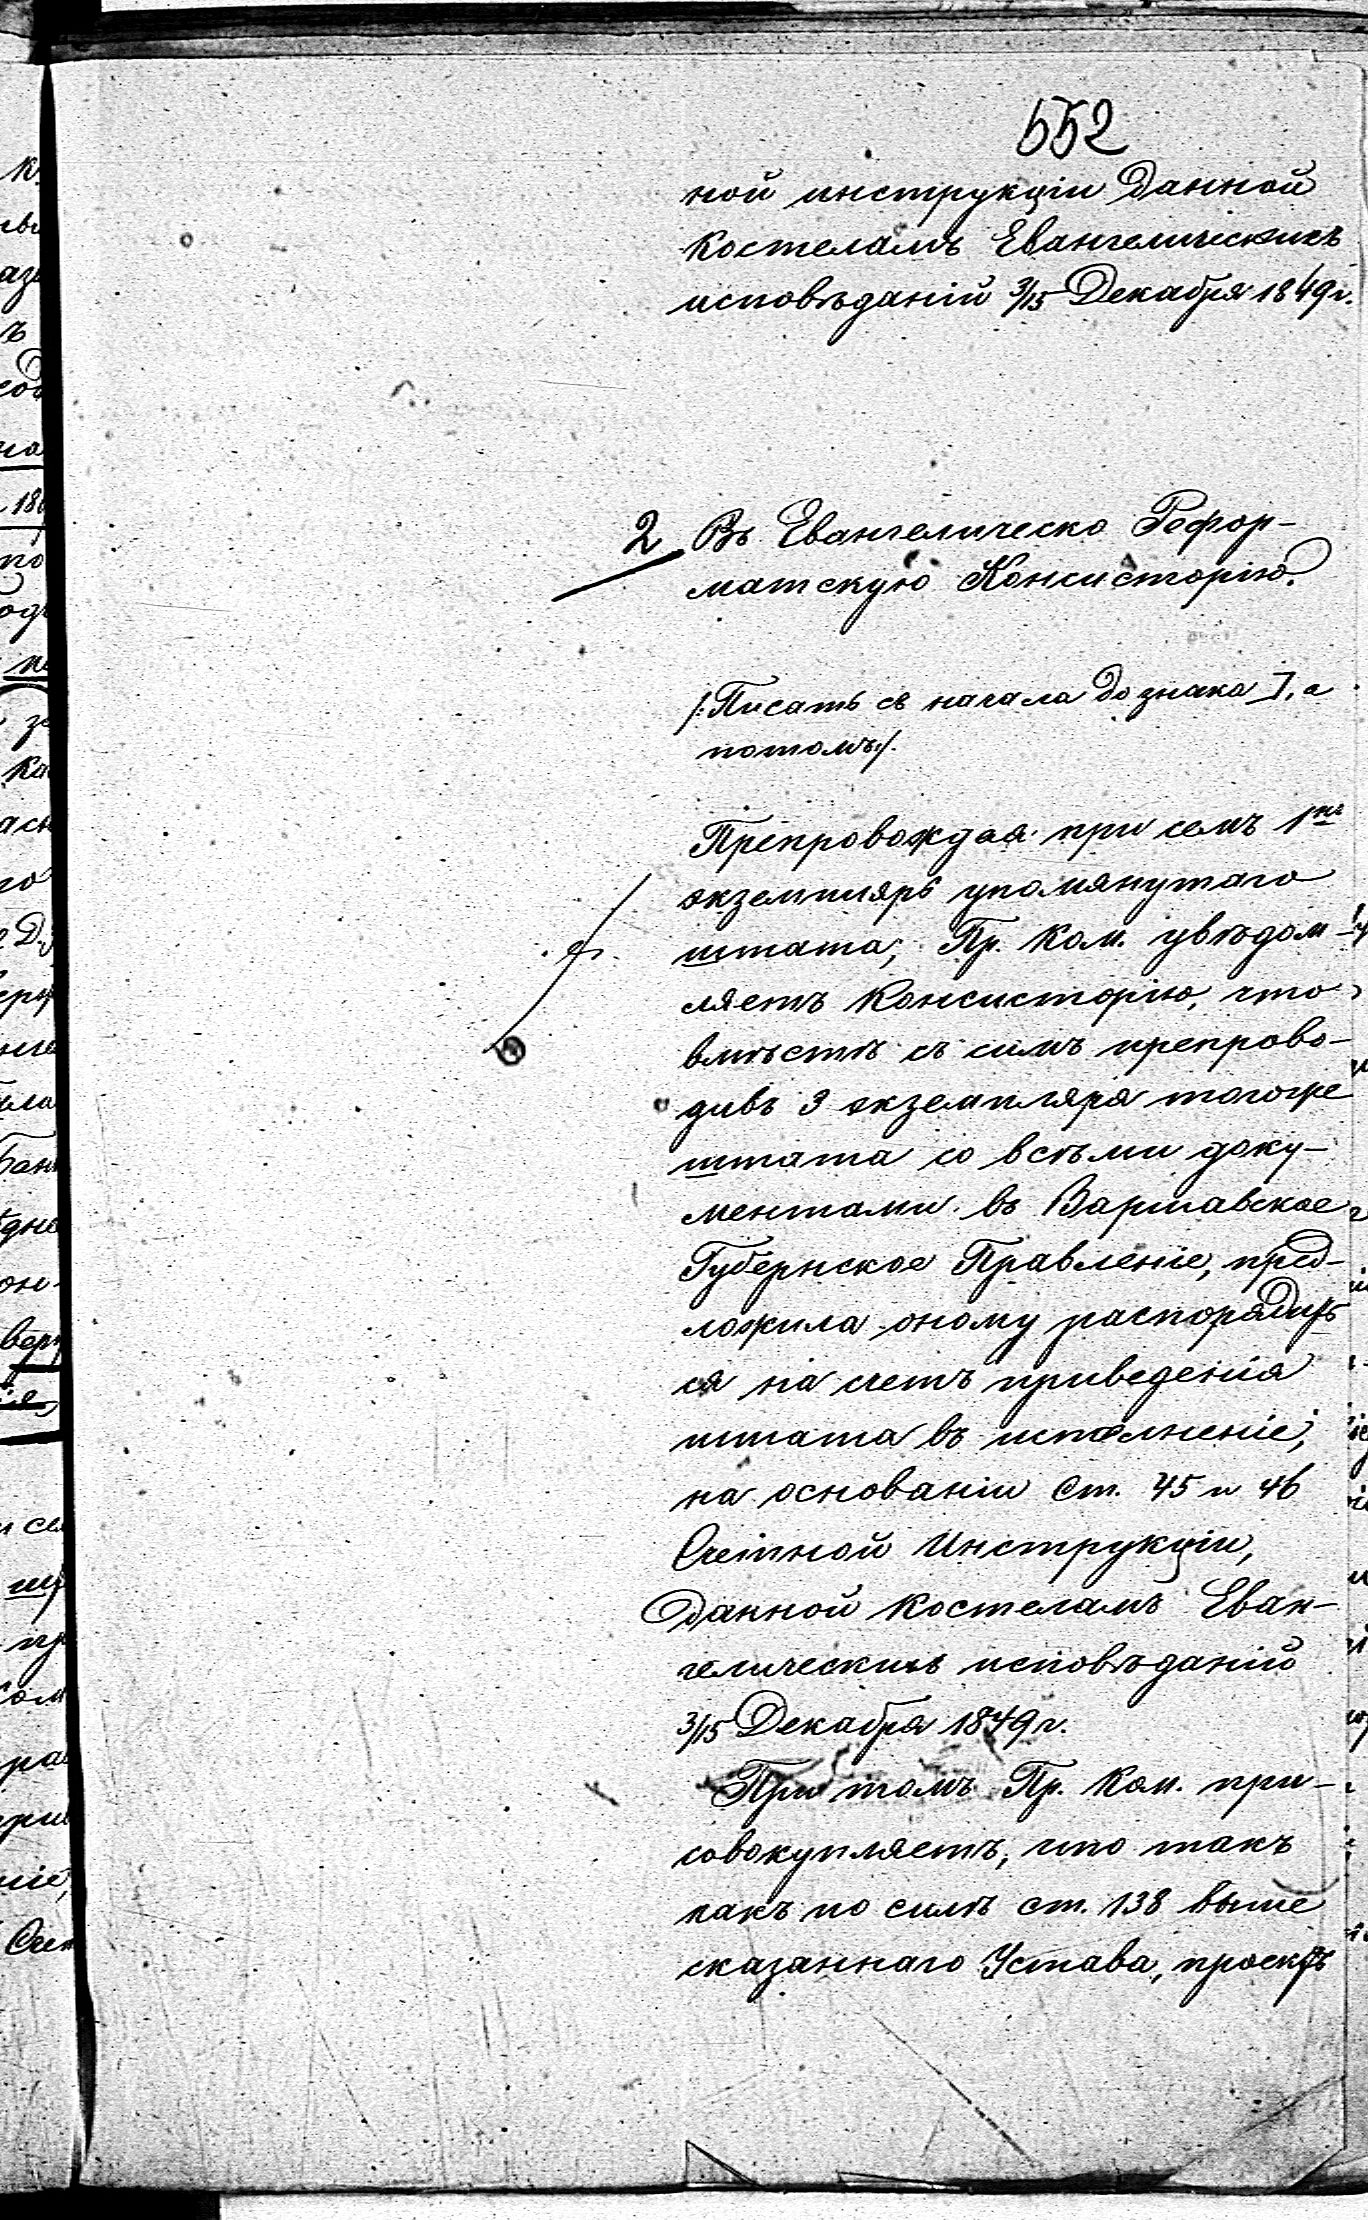 552
ной инструкціи данной
костеламъ Евангелическихъ
исповѣданій 3/15 Декабря 1849 г.
2 Въ Евангелическо Рефор-
матскую Консисторію.
/:Писать съ начала до знака ], а
потомъ:/.
Препровождая при семъ 1нъ
экземпляръ упомянутаго
штата, Пр. Ком. увѣдом-
ляетъ Консисторію, что
вмѣстѣ съ симъ препрово-
дивъ 3 экземпляра тогоже
штата со всѣми доку-
ментами въ Варшавское
Губернское Правленіе, пред-
ложила оному распорядить
ся на счетъ приведенія
штата въ исполненіе,
на основаніи Ст. 45 и 46
Счетной Инструкціи,
данной костеламъ Еван-
гелическихъ исповѣданій
3/15 Декабря 1849 г.
При томъ Пр. Ком. при-
совокупляетъ, что такъ
какъ по силѣ ст. 138 выше
сказаннаго Устава, проектъ